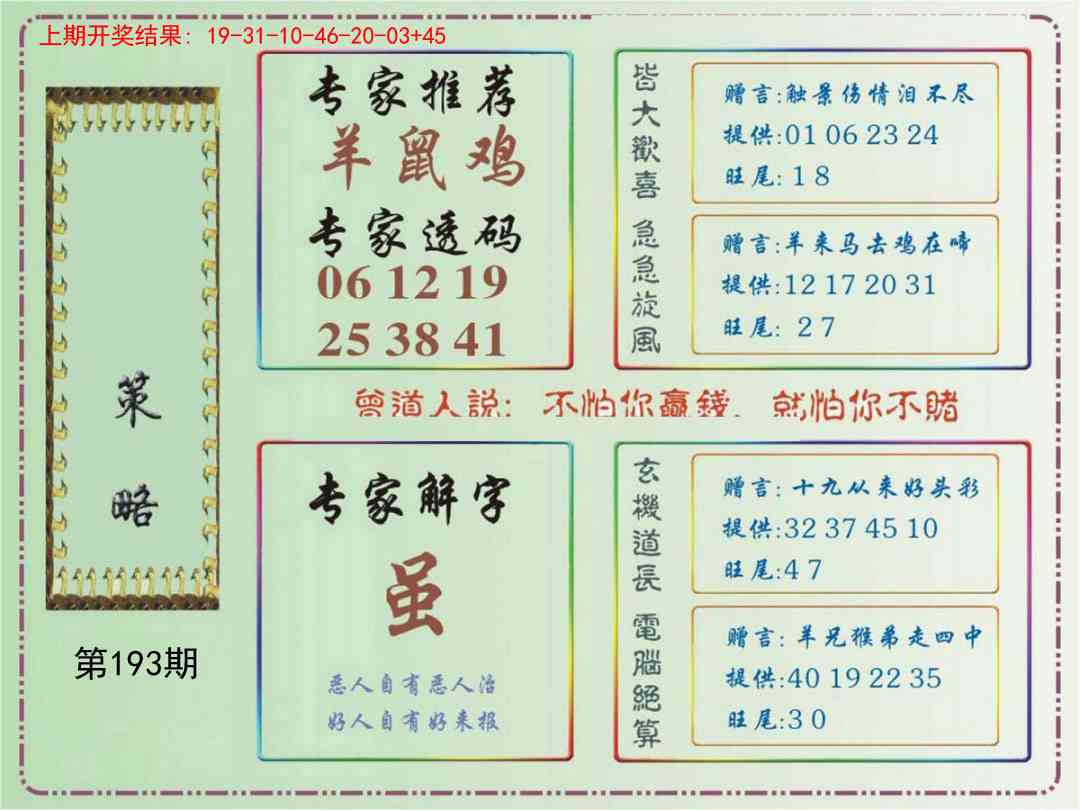 上期开奖结果: 19-31-10-46-20-03+45
策略
第193期
专家推荐
羊鼠鸡
专家透码
06 12 19
25 38 41
皆大歡喜
赠言:触景伤情泪不尽
提供:01 06 23 24
旺尾: 1 8
急急旋風
赠言:羊来马去鸡在啼
提供:12 17 20 31
旺尾: 2 7
曾道人説: 不怕你贏錢. 就怕你不賭
专家解字
虽
恶人自有恶人治
好人自有好来报
玄機道長
赠言: 十九从来好头彩
提供:32 37 45 10
旺尾:4 7
電腦絕算
赠言: 羊兄猴弟走四中
提供:40 19 22 35
旺尾:3 0